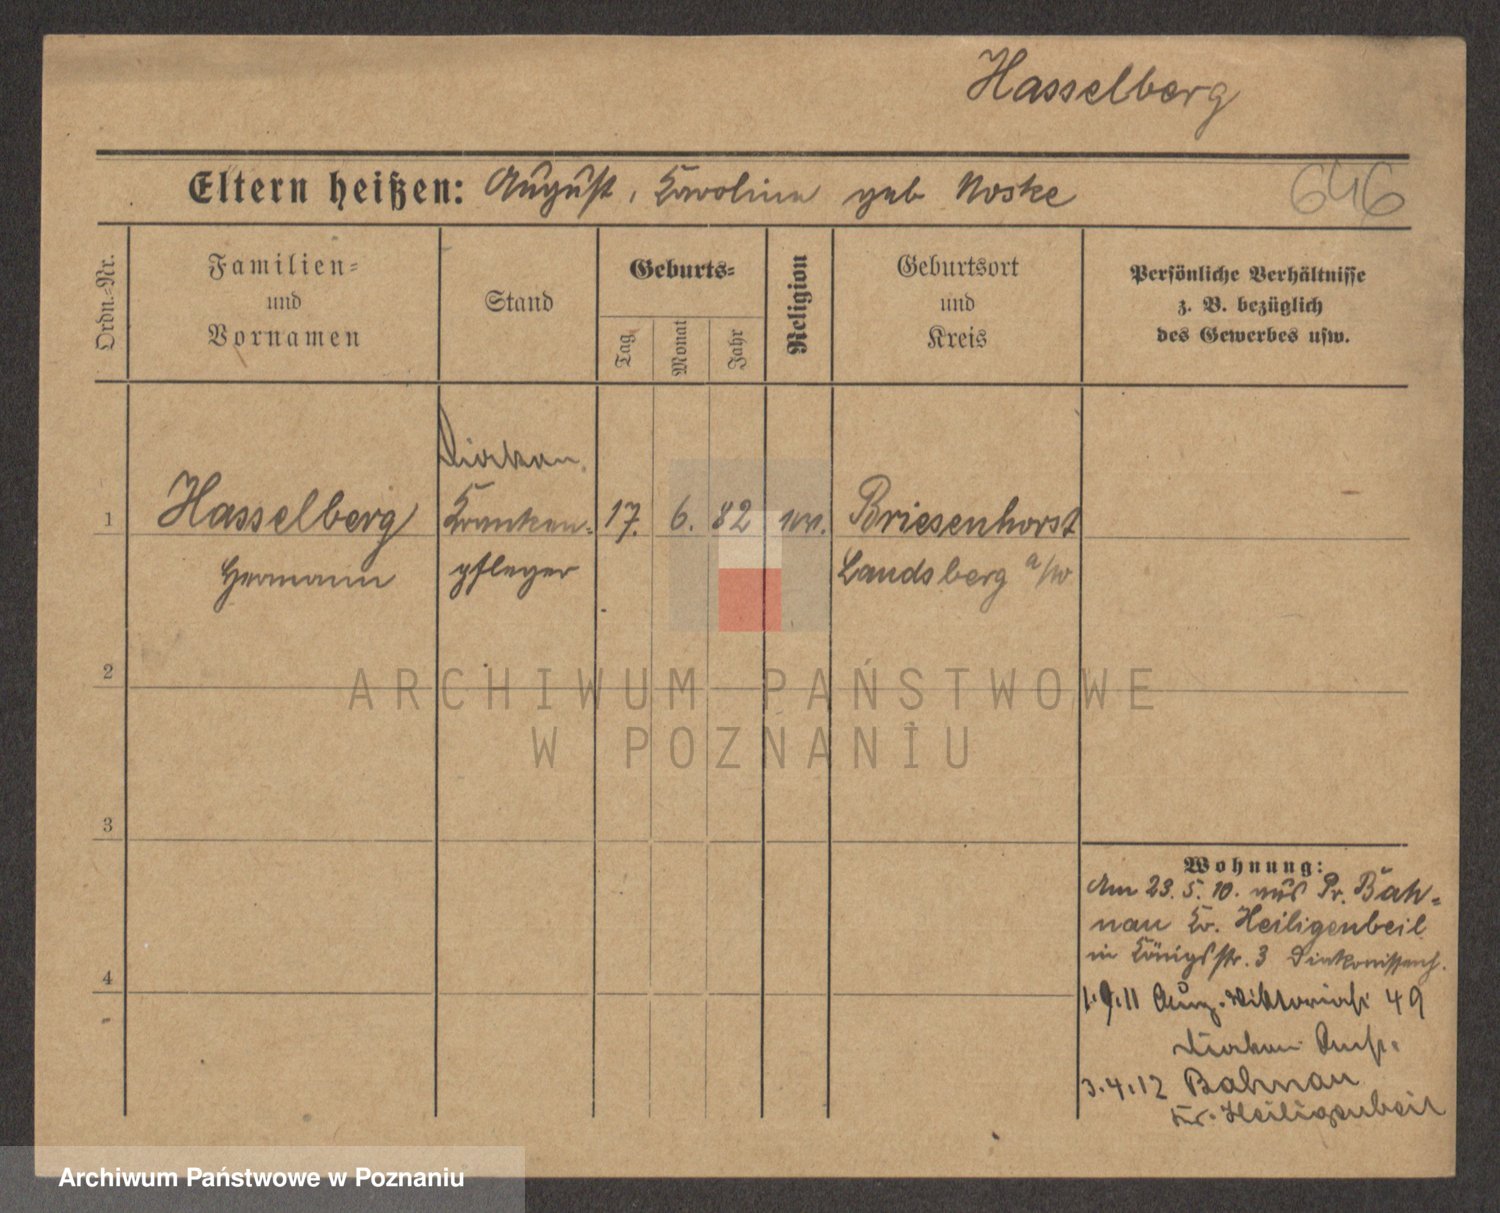 Hasselberg
Eltern heißen: August, Karoline geb Noske
646
Ordn.-Nr.
Familien-
und
Vornamen
Stand
Geburts-
Tag
Monat
Jahr
Religion
Geburtsort
und
Kreis
Persönliche Verhältnisse
z. B. bezüglich
des Gewerbes usw.
Diakon.
1 Hasselberg Kranken- 17. 6. 82 Briesenhorst
Hermann pfleger Landsberg a/W
2
ARCHIWUM PAŃSTWOWE
W POZNANIU
3
Wohnung:
Am 23. 5. 10. aus Pr. Bah-
nau Kr. Heiligenbeil
4 in Königstr. 3 Diakonissenh.
1.9.11 Viktoriastr 49
Diakon
3.4.12 Bahnau
Kr. Heiligenbeil
Archiwum Państwowe w Poznaniu